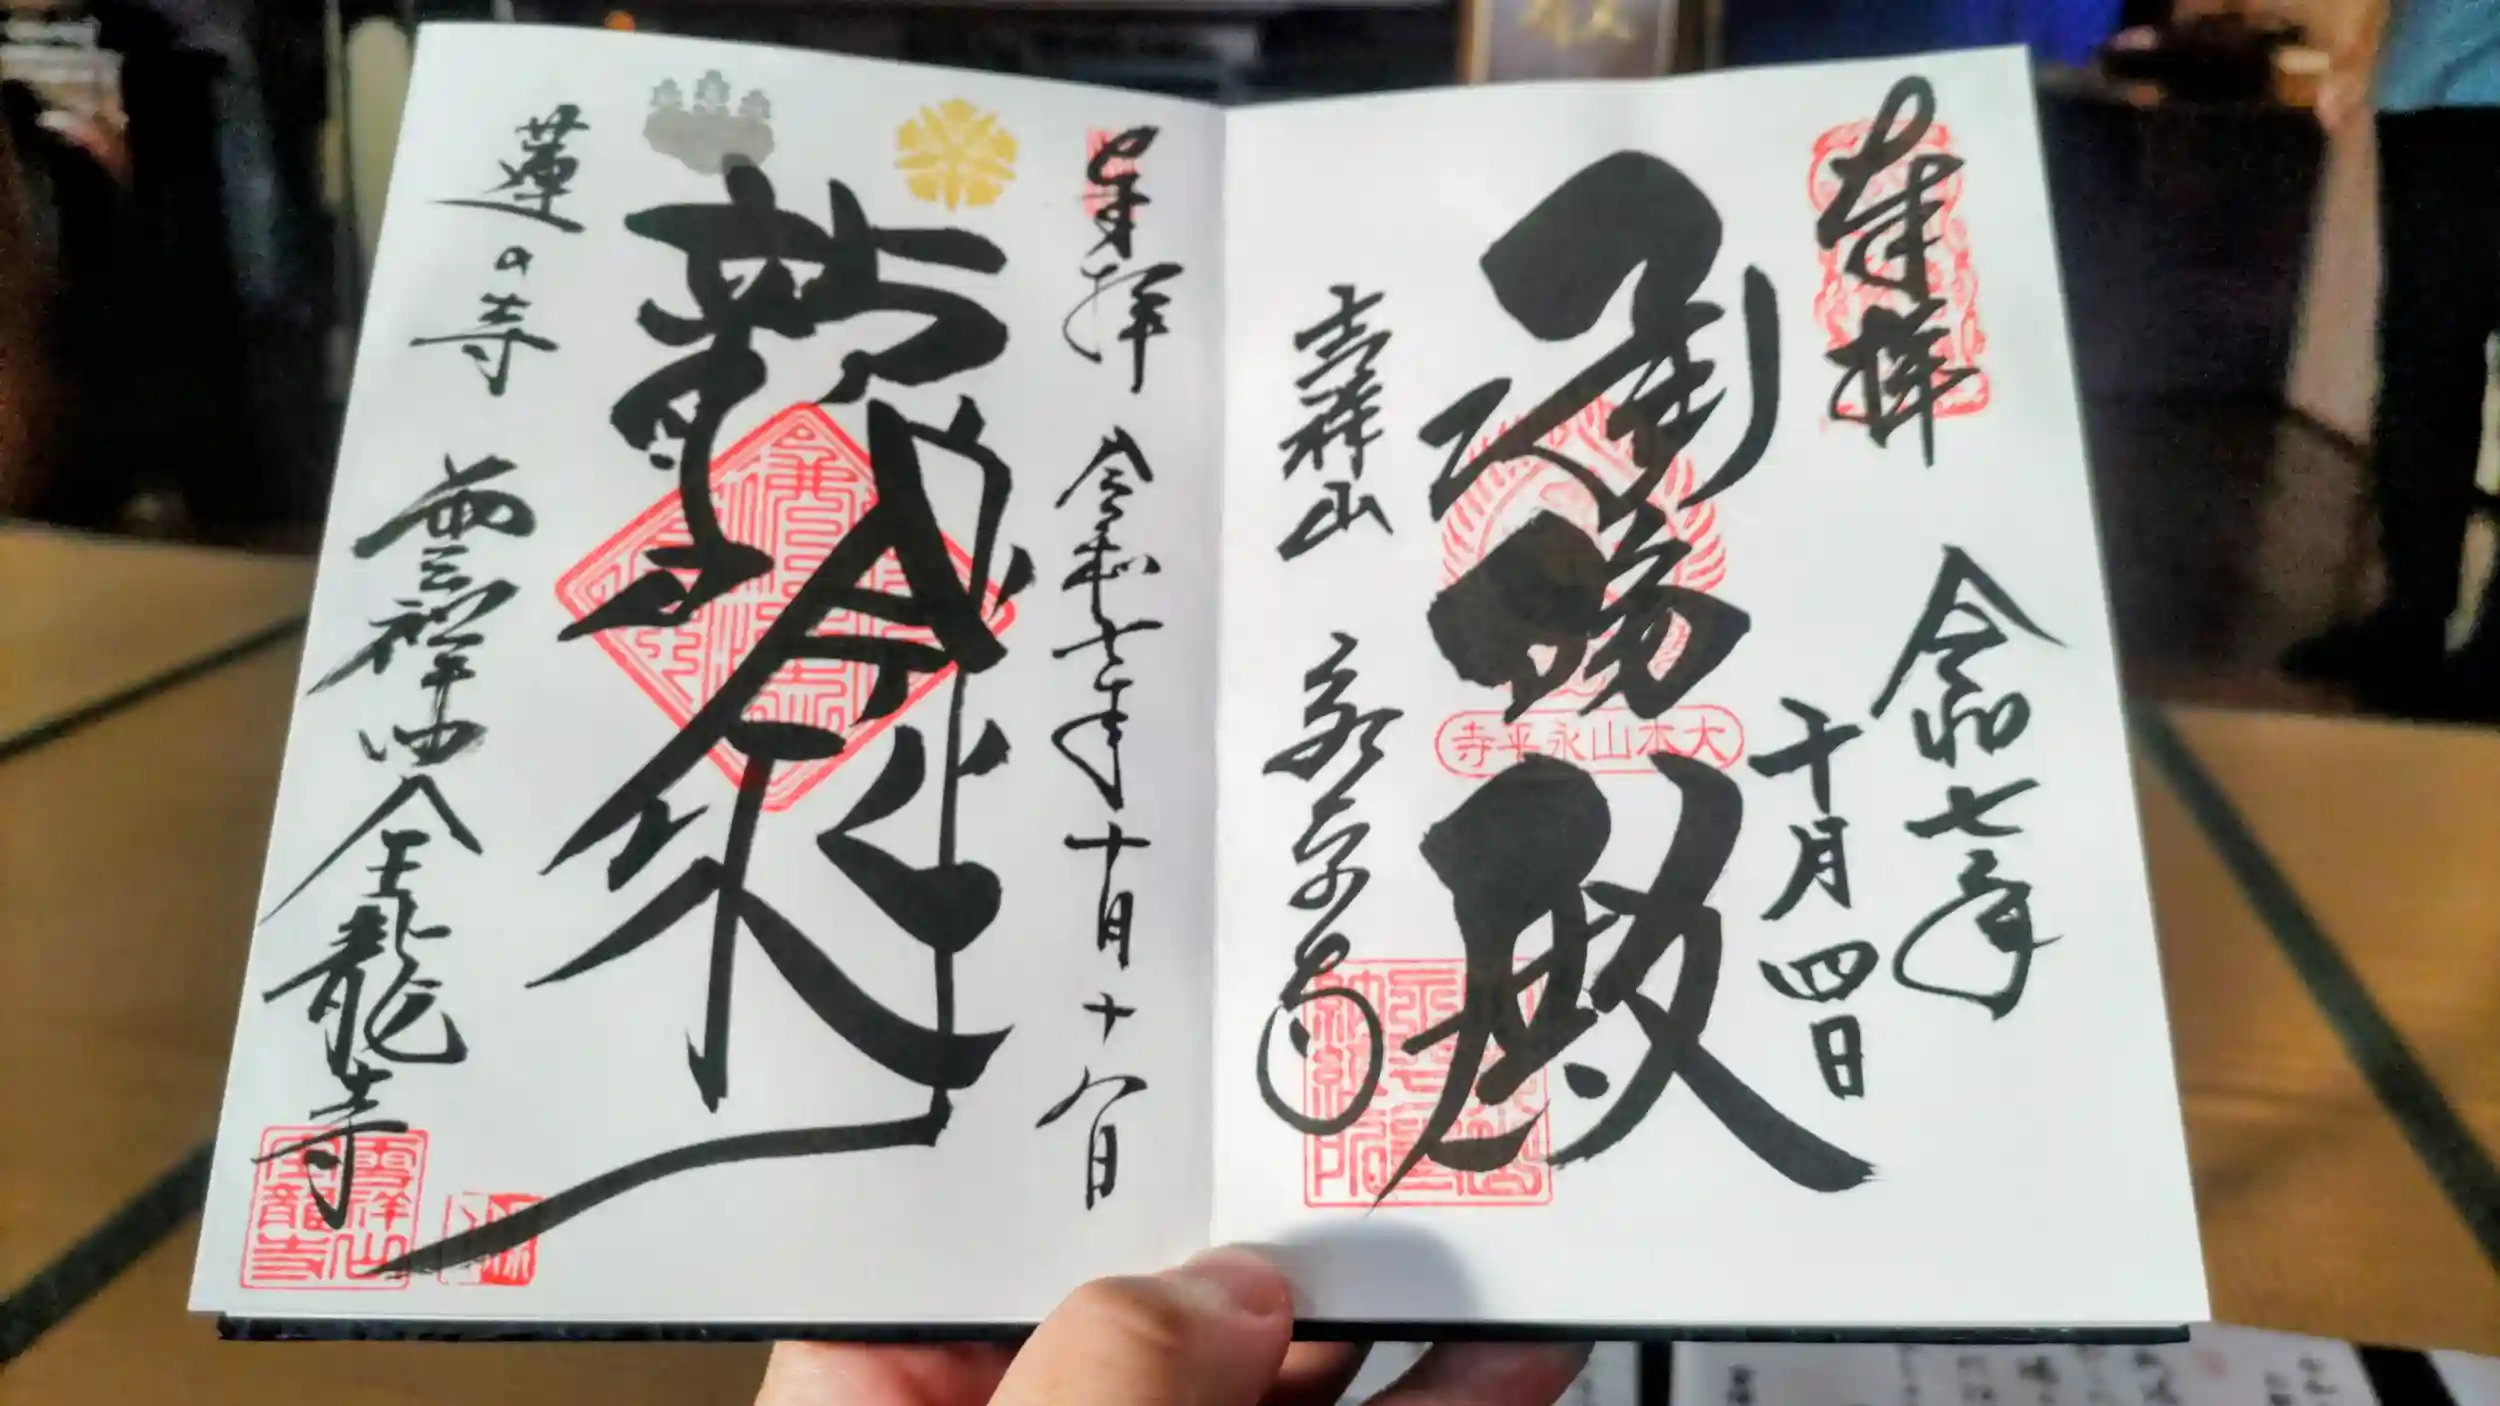 奉拝
令和七年
十月四日
承陽殿
大本山永平寺
吉祥山
永平寺
奉拝 令和七年十月十八日
蓮の寺 雲祥山 全龍寺
雲祥山
全龍寺